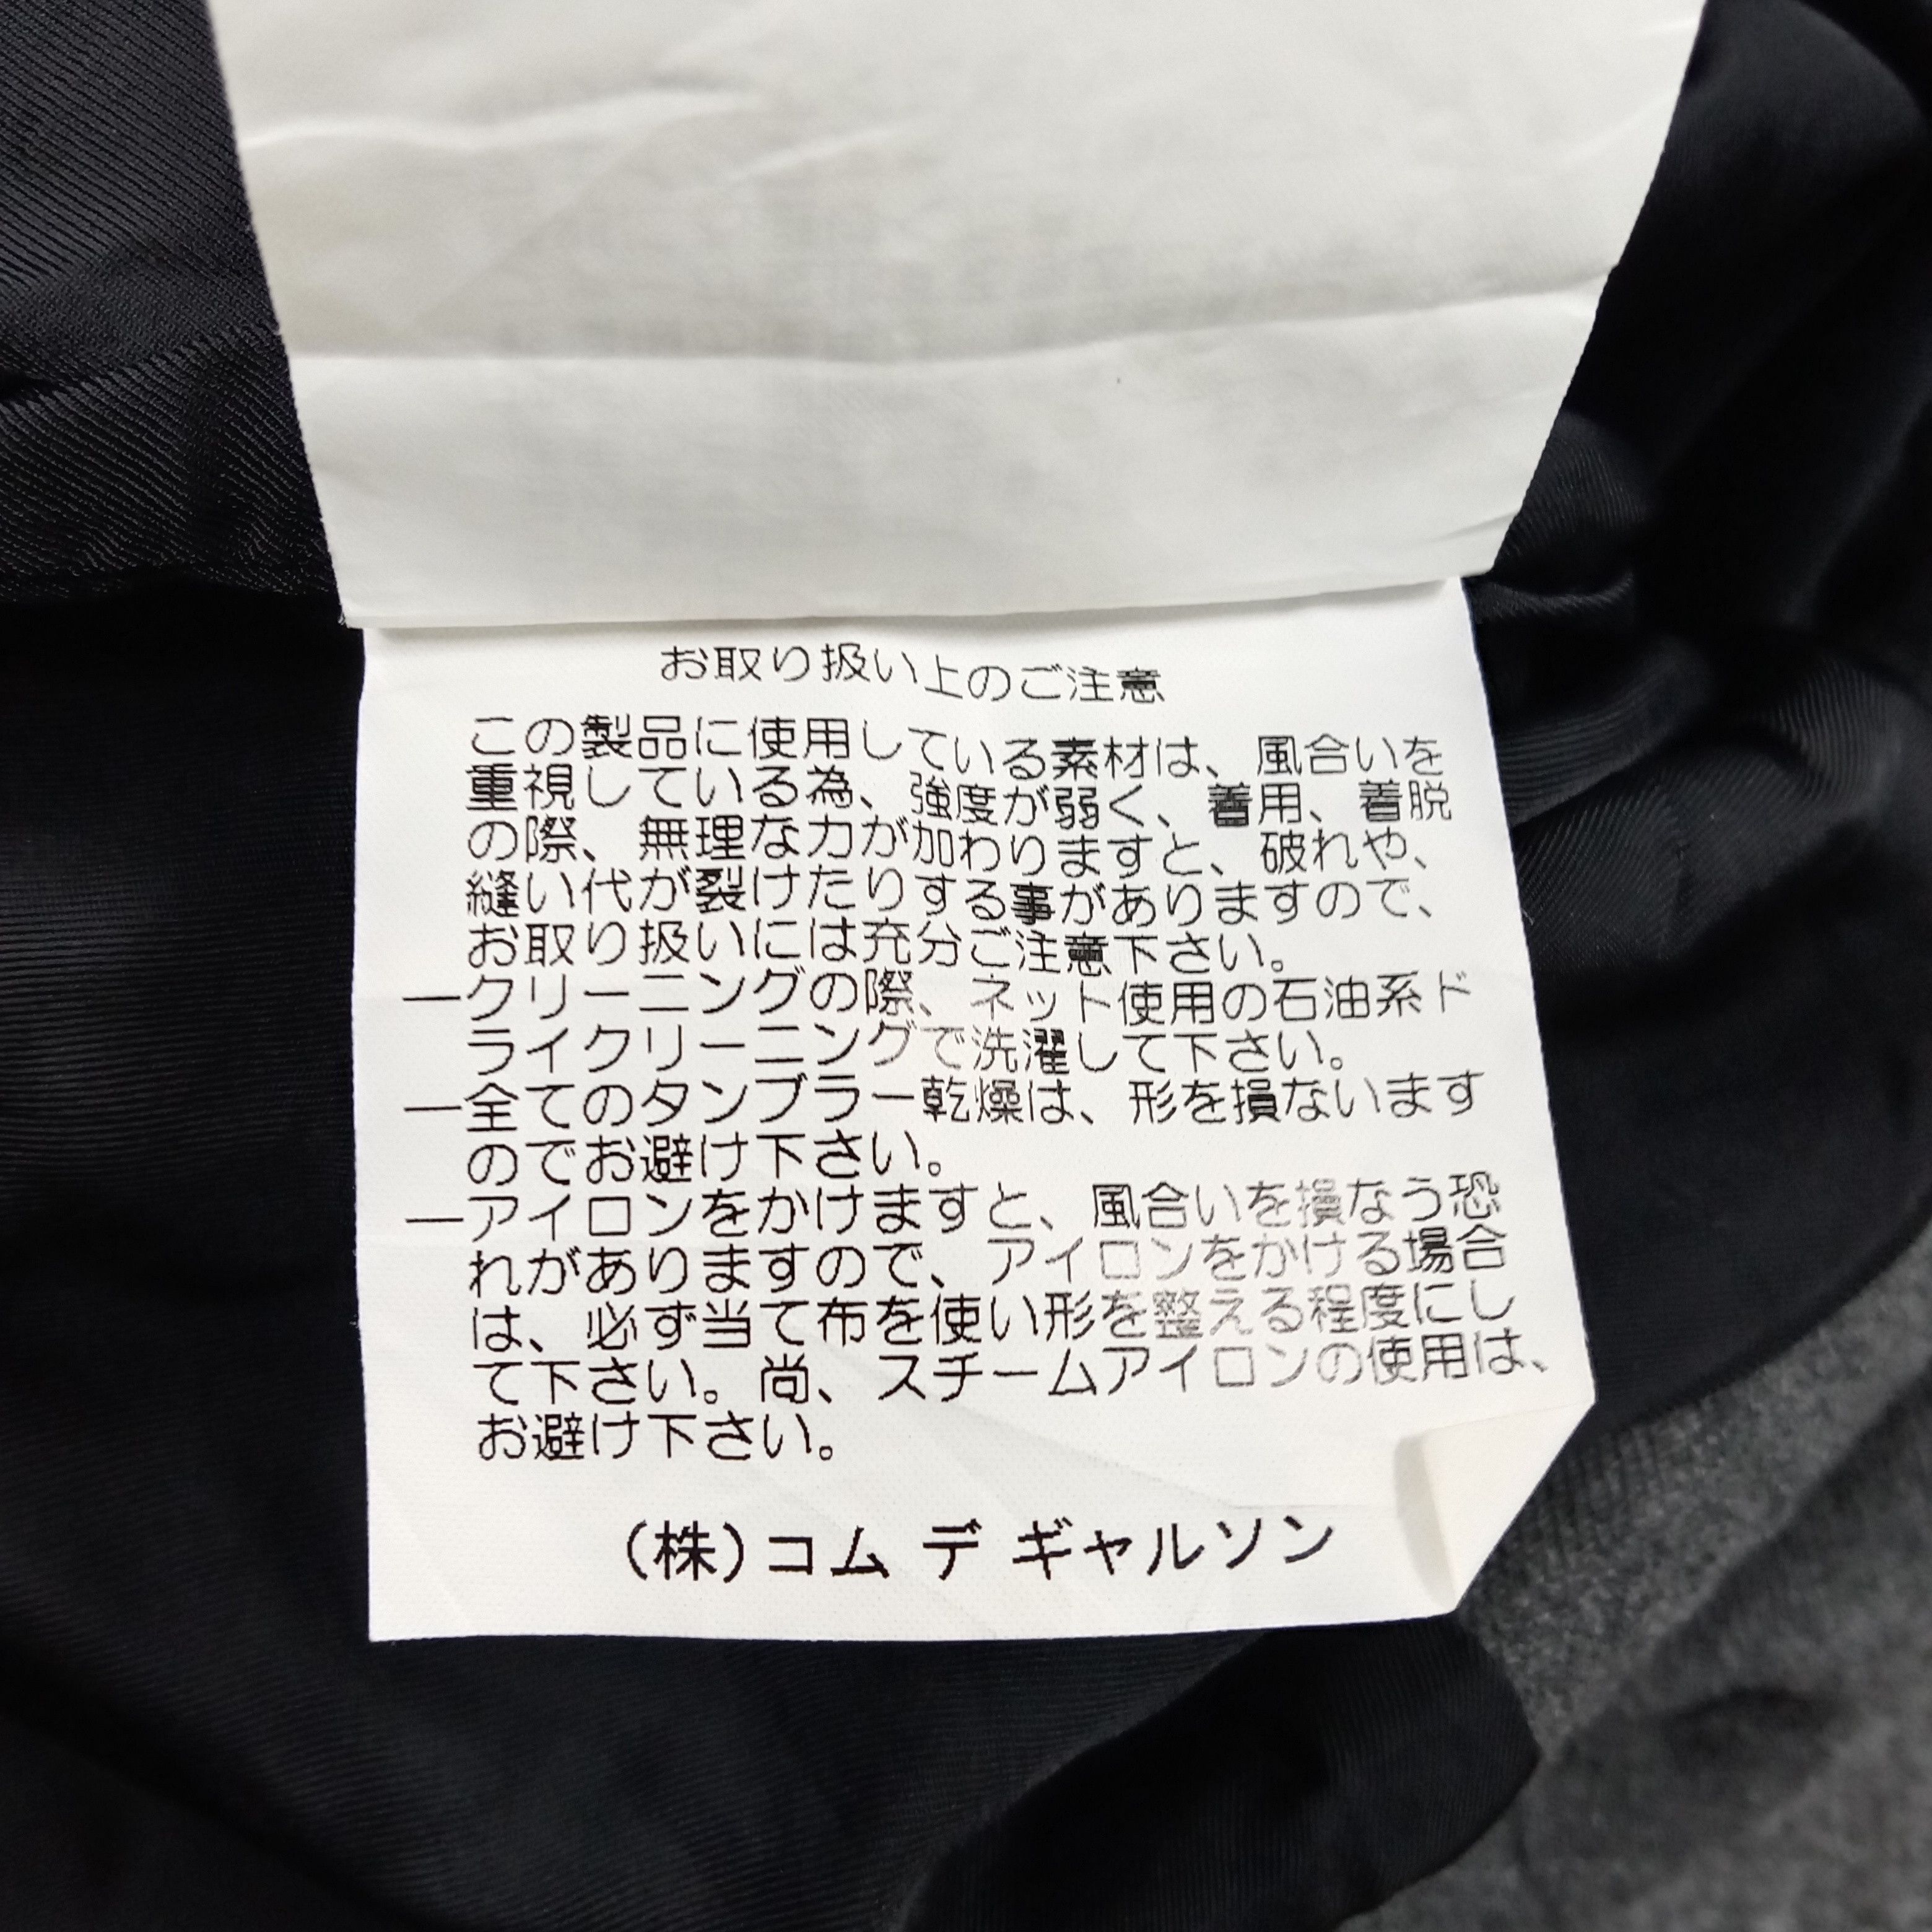 お取り扱い上のご注意
この製品に使用している素材は、風合いを
重視している為、強度が弱く、着用、着脱
の際、無理な力が加わりますと、破れや、
縫い代が裂けたりする事がありますので、
お取り扱いには充分ご注意下さい。
―クリーニングの際、ネット使用の石油系ド
ライクリーニングで洗濯して下さい。
―全てのタンブラー乾燥は、形を損ないます
のでお避け下さい。
―アイロンをかけますと、風合いを損なう恐
れがありますので、アイロンをかける場合
は、必ず当て布を使い形を整える程度にし
て下さい。尚、スチームアイロンの使用は、
お避け下さい。
(株)コム デ ギャルソン